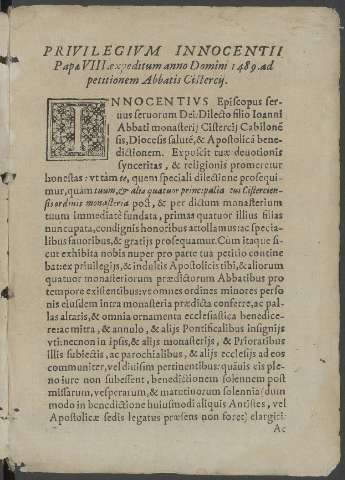 PRIVILEGIVM INNOCENTII
Papæ VIII. expeditum anno Domini 1489. ad
petitionem Abbatis Cistercij.
INNOCENTIVS Episcopus ser-
uus seruorum Dei: Dilecto filio Ioanni
Abbati monasterij Cistercij Cabilonẽ
sis, Diocesis salutẽ, & Apostolicã bene
dictionem. Exposcit tuæ deuotionis
synceritas, & religionis promeretur
honestas: vt tàm te, quem speciali dilectione prosequi-
mur, quàm tuum, & alia quatuor principalia tui Cistercien-
sis ordinis monasteria post, & per dictum monasterium
tuum immediatè fundata, primas quatuor illius filias
nuncupata, condignis honoribus attollamus: ac specia-
libus fauoribus, & gratijs prosequamur. Cum itaque si-
cut exhibita nobis nuper pro parte tua petitio contine
bat: ex priuilegijs, & indultis Apostolicis tibi, & aliorum
quatuor monasteriorum prædictorum Abbatibus pro
tempore existentibus: vt omnes ordines minores perso
nis eiusdem intra monasteria prædicta conferre, ac pal-
las altaris, & omnia ornamenta ecclesiastica benedice-
re: ac mitra, & annulo, & alijs Pontificalibus insignijs
vti: necnon in ipsis, & alijs monasterijs, & Prioratibus
illis subiectis, ac parochialibus, & alijs ecclesijs ad eos
communiter, vel diuisim pertinentibus: quàuis eis ple-
no iure non subessent, benedictionem solennem post
missarum, vesperarum, & matutinorum solennia (dum
modo in benedictione huiusmodi aliquis Antistes, vel
Apostolicæ sedis legatus præsens non foret) elargiri:
Ac